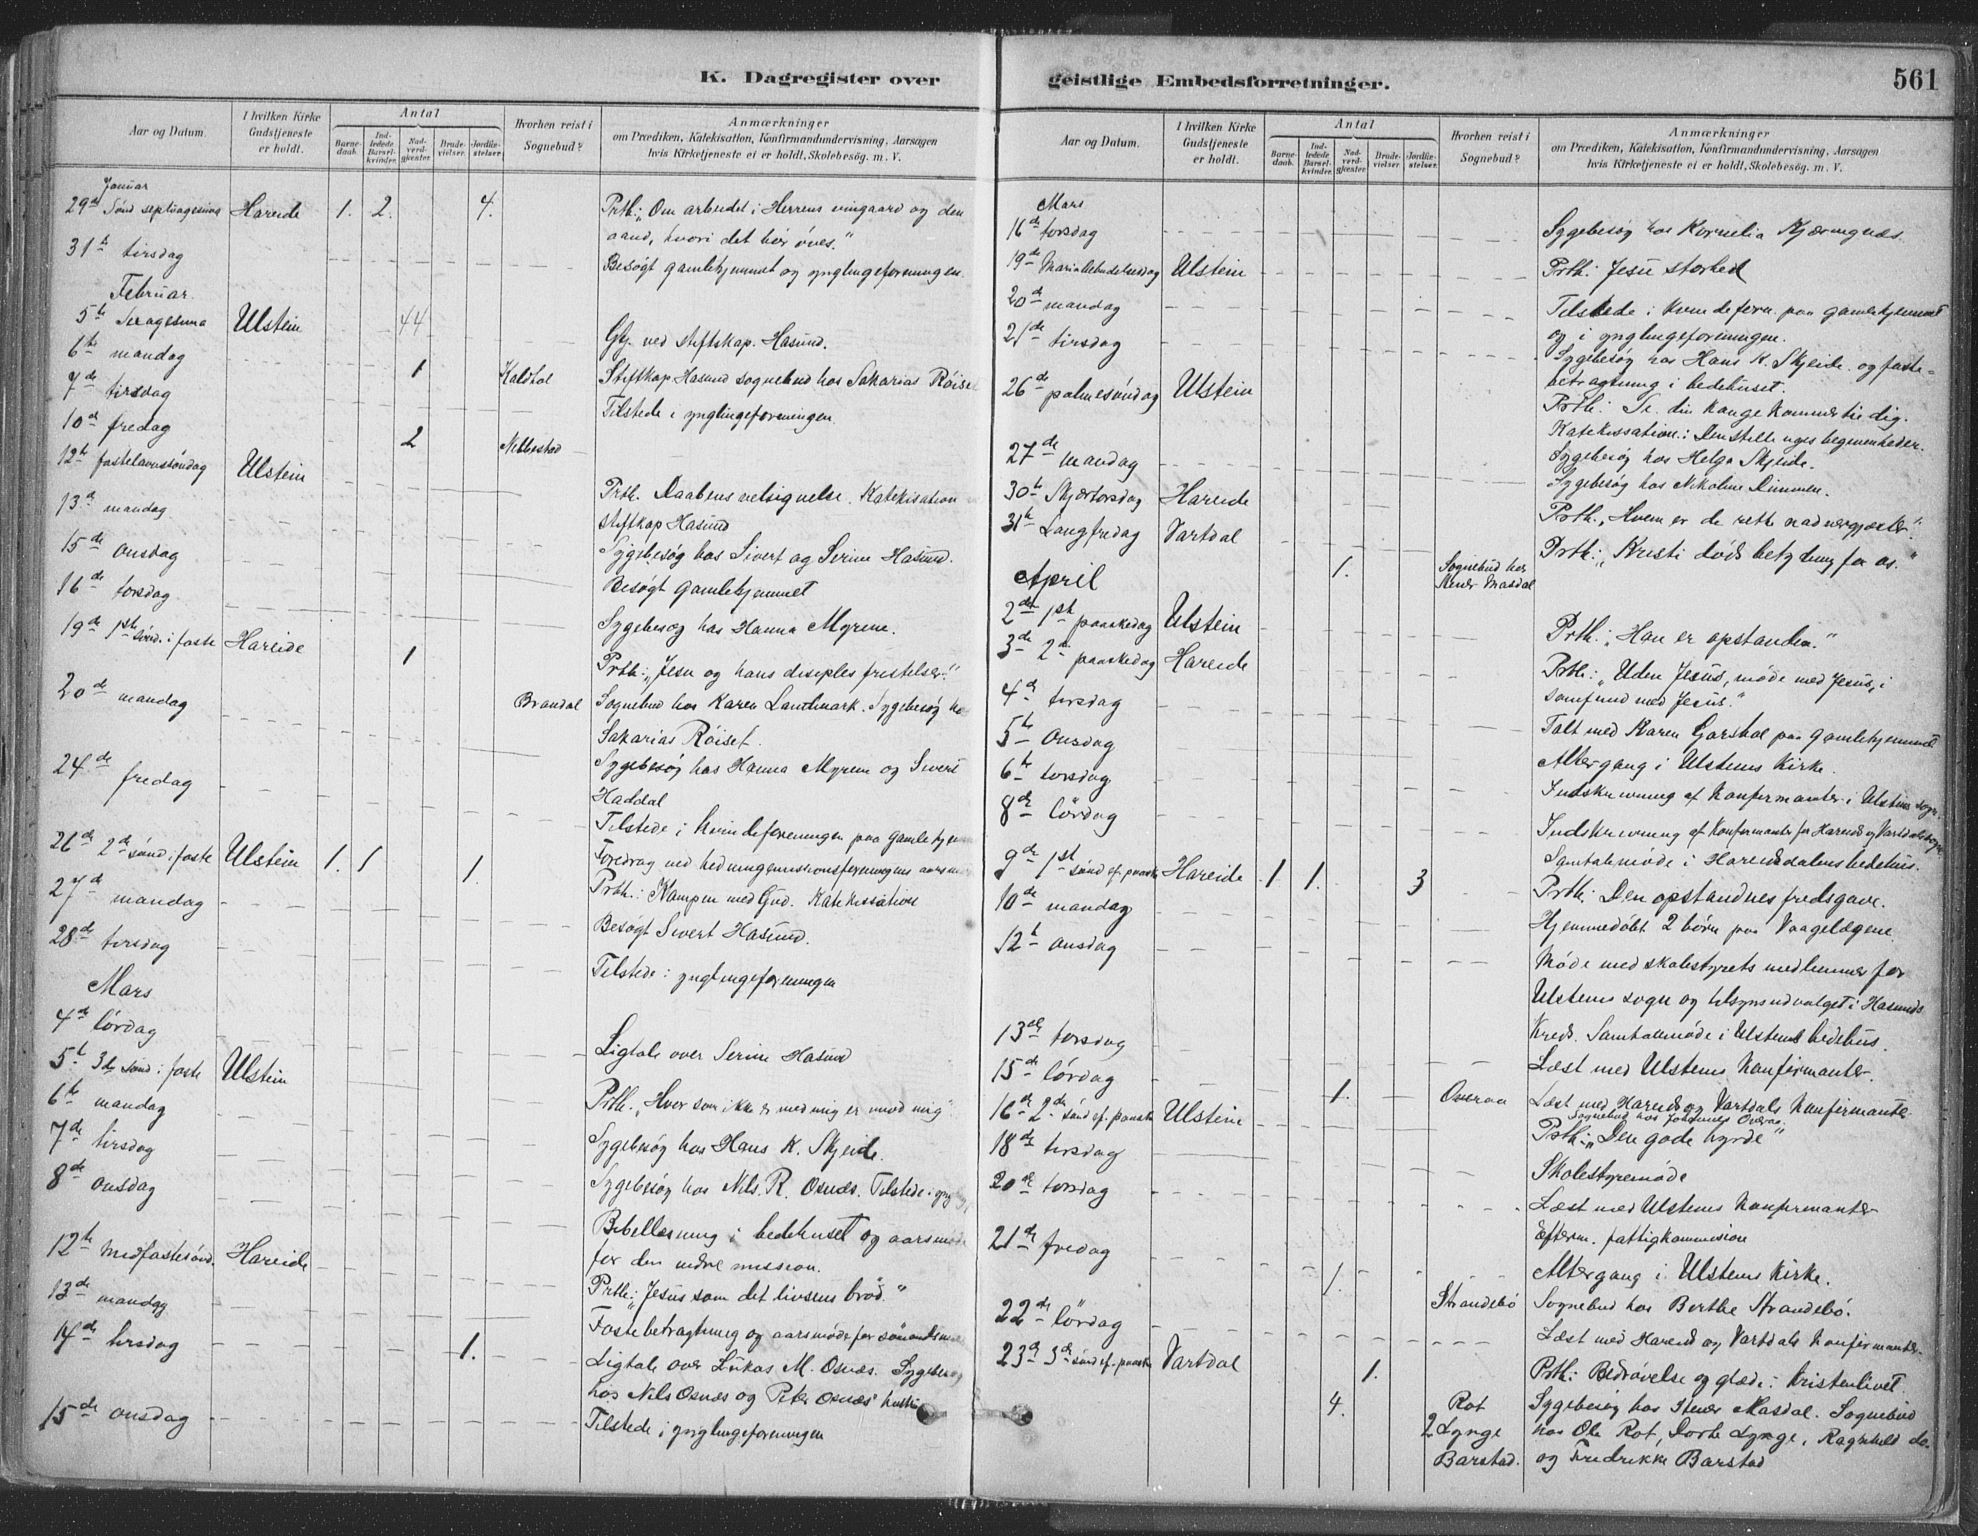 K. Dagregister over
Aar og Datum.
I hvilken Kirke Gudstjeneste er holdt.
Antal
Barnedaab.
Indledede Barselkvinder.
Nadverdgjæster
Brudevielser.
Jordfæstelser.
Hvorhen reist i Sognebud?
Anmærkninger
om Prædiken, Katekisation, Konfirmandundervisning, Aarsagen
hvis Kirketjeneste ei er holdt, Skolebesøg. m. V.
Januar
29de Sønd septuagesima Hareide 1. 2. 4. Prth: „Om arbeidet i Herrens vingaard og den
aand, hvori det bør øves.“
31te tirsdag Besøgt gamlehjemmet og ynglingeforeningen.
Februar.
5te Ulstein 44
6te mandag Gtj. ved stiftskap. Hasund.
7de tirsdag 1 Kaldhol Stiftkap Hasund sognebud hos Sakarias Röiset
10de fredag Tilstede i ynglingeforeningen
12te fastelavnssöndag Ulstein 2
13de mandag Prth. Daabens velsignelse. Katekisation
stiftkap Hasund
15de onsdag Sygebesøg hos Sivert og Serine Hasund.
16de torsdag Besøgt gamlehjemmet
19de 1ste sönd. i faste Hareide Sygebesøg hos Hanna Myrene.
1 Prth: „Jesu og hans disiples fristelser“
20de mandag Brandal Sognebud hos Karen Landmark. Sygebesøg hos
Sakarias Röiset.
24de fredag Sygebesøg hos Hanna Myrene og Sivert
Haddal
Tilstede i kvindeforeningen paa gamlehjemmet
26de 2de sönd i faste Ulstein 1. 1 1. Foredrag ved hedningemissionsforeningens
27de mandag Prth: Kampen med Gud. Katekisation
28de tirsdag Besøgt Sivert Hasund.
Tilstede i ynglingeforeningen
Mars
4de lördag Ligtale over Serine Hasund
5te 3de sönd i faste Ulstein
6te mandag Prth: „Hver som ikke er med mig er mod mig“
7de tirsdag Sygebesøg hos Hans K. Skjeide.
8de onsdag Sygebesøg hos Nils R. Osnæs. Tilstede i
Bibellæsning i bedehuset og aarsmöde
12te Midfastesönd. Hareide for den indre mission.
13de mandag Prth: „Jesus som det livsens bröd.“
14de tirsdag 1. Fastebetragtning og aarsmöde for
Ligtale over Lukas M. Osnæs. Sygebesøg
hos Nils Osnæs og Peter Osnæs' hustru
15de onsdag Tilstede i ynglingeforeningen
geistlige Embedsforretninger.
561
Aar og Datum.
I hvilken Kirke Gudstjeneste er holdt.
Antal
Barnedaab.
Indledede Barselkvinder.
Nadverdgjæster.
Brudevielser.
Jordfæstelser.
Hvorhen reist i Sognebud?
Anmærkninger
om Prædiken, Katekisation, Konfirmandundervisning, Aarsagen
hvis Kirketjeneste ei er holdt, Skolebesøg. m. V.
Mars
16de torsdag Sygebesøg hos Kornelia Kjæringnæs.
19de Maria Bebudelsesdag Ulstein Prth: Jesu storhed
20de mandag Tilstede i kvindeforen. paa gamlehjemmet
21de tirsdag og i ynglingeforeningen.
Sygebesøg hos Hans K. Skjeide og faste-
26de palmesöndag Ulstein betragtning i bedehuset.
Prth: Se, din konge kommer til dig.
Katekisation: Den stille uges begivenheder.
27de mandag Sygebesøg hos Helga Skjeide.
Sygebesøg hos Nikoline Dimmen.
30te Skjærtorsdag Hareide Prth: „Hvem er de rette nadvergjæster“.
31te Langfredag Vartdal Prth: „Kristi döds betydning for os.“
1. Sognebud hos Masdal
April
2den 1ste paaskedag Ulstein Prth: „Han er opstanden.“
3de 2den paaskedag Hareide Prth: „Uden Jesus, möde med Jesus, i
samfund med Jesus“.
4de tirsdag Talt med Karen Garshol paa gamlehjemmet
5te Onsdag Altergang i Ulsteins kirke.
6te torsdag Indskrivning af konfirmanter i Ulsteins sogn
8de lördag Indskrivning af konfirmanter for Hareids og Vartdals sogn
Samtalemöde i Hareidsdalens bedehus.
9de 1ste sönd ef. paaske Hareide 1 1. 3 Prth: Den opstandnes fredsgave.
10de mandag Hjemmedöbt 2 börn paa
12te onsdag Möde med skolestyrets medlemmer for
Ulsteins sogn og tilsynsudvalget i Hasunds
Kreds. Samtalemöde i Ulsteins bedehus.
13de torsdag Læst med Ulsteins konfirmanter.
15de lördag 1. Overaa Læst med Hareids og Vartdals konfirmanter
Sognebud hos Johannes Overaa.
16de 2den sönd ef. paaske Ulstein Prth: „Den gode hyrde“
18de tirsdag Skolestyremöde
20de torsdag Læst med Ulsteins konfirmanter
Efterm. fattigkommision
21de fredag Altergang i Ulsteins kirke.
1. Strandebö Sognebud hos Berthe Strandebö.
22de lördag Læst med Hareids og Vartdals konfirmanter.
23de 3de sönd ef. paaske Vartdal 1. Prth: Bedrövelse og glæde i kristenlivet.
4. Rot Sygebesøg hos Masdal. Sognebud
2 Lynge hos Ole Rot, Dorte Lynge, Ragnhild do.
Barstad. og Fredrikke Barstad